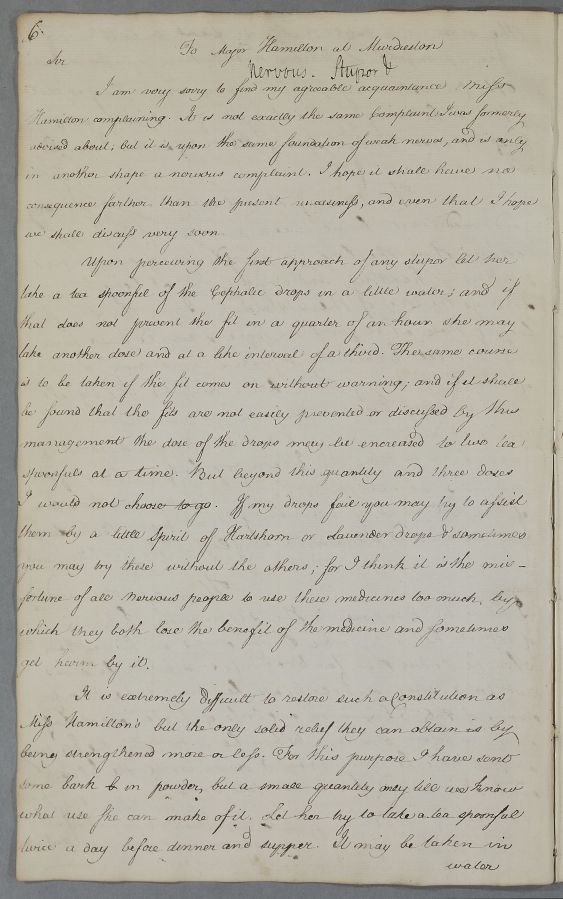 6.
To Major Hamilton at Murdieston
Sir
Nervous. Stupor &
I am very sorry to find my agreeable acquaintance Miss
Hamilton complaining. It is not exactly the same Complaint I was formerly
advised about; but it is upon the same foundation of weak nerves, and is only
in another shape a nervous complaint. I hope it shall have no
consequence farther than the present uneasiness, and even that I hope
we shall discuss very soon
Upon perceiving the first approach of any stupor let her
take a tea spoonful of the Cephalic drops in a little water; and if
that does not prevent the fit in a quarter of an hour she may
take another dose and at a like interval of a third. The same course
is to be taken if the fit comes on without warning; and if it shall
be found that the fits are not easily prevented or discussed by this
management the dose of the drops may be encreased to two tea
spoonfuls at a time. But beyond this quantity and three doses
I would not choose to go. If my drops fail you may try to assist
them by a little Spirit of Hartshorn or Lavender drops & sometimes
you may try these without the others; for I think it is the mis-
fortune of all nervous people to use these medicines too much, by
which they both lose the benefit of the medicine and sometimes
get harm by it.
It is extremely difficult to restore such a Constitution as
Miss Hamilton's but the only solid relief they can obtain is by
being strengthened more or less. For this purpose I have sent
some bark in powder, but a small quantity only till we know
what use she can make of it. Let her try to take a tea spoonful
twice a day before dinner and supper. It may be taken in
water